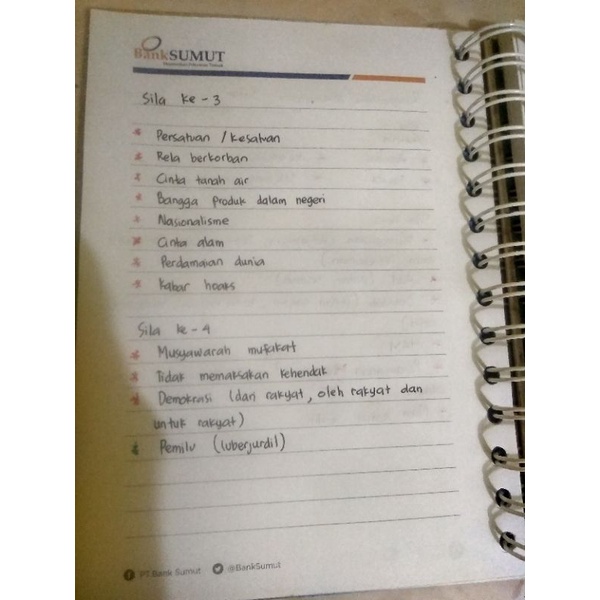 BankSUMUT
Sila ke - 3
* Persatuan / kesatuan
* Rela berkorban
* Cinta tanah air
* Bangga produk dalam negeri
* Nasionalisme
* Cinta alam
* Perdamaian dunia
* Kabar hoaks
Sila ke - 4
* Musyawarah mufakat
* Tidak memaksakan kehendak
* Demokrasi (dari rakyat, oleh rakyat dan
untuk rakyat)
* Pemilu (luberjurdil)
PT.Bank Sumut @BankSumut